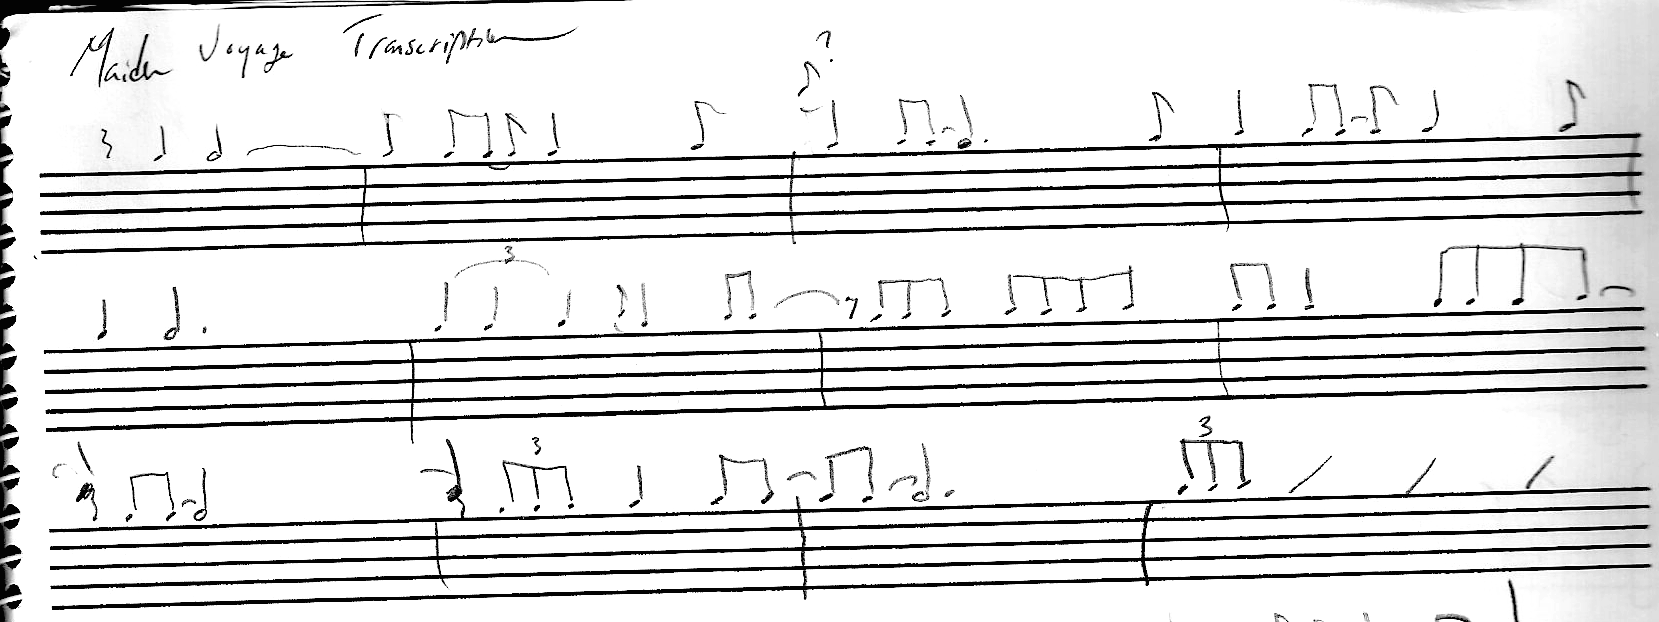 Maiden Voyage Transcription
?
3
3
3